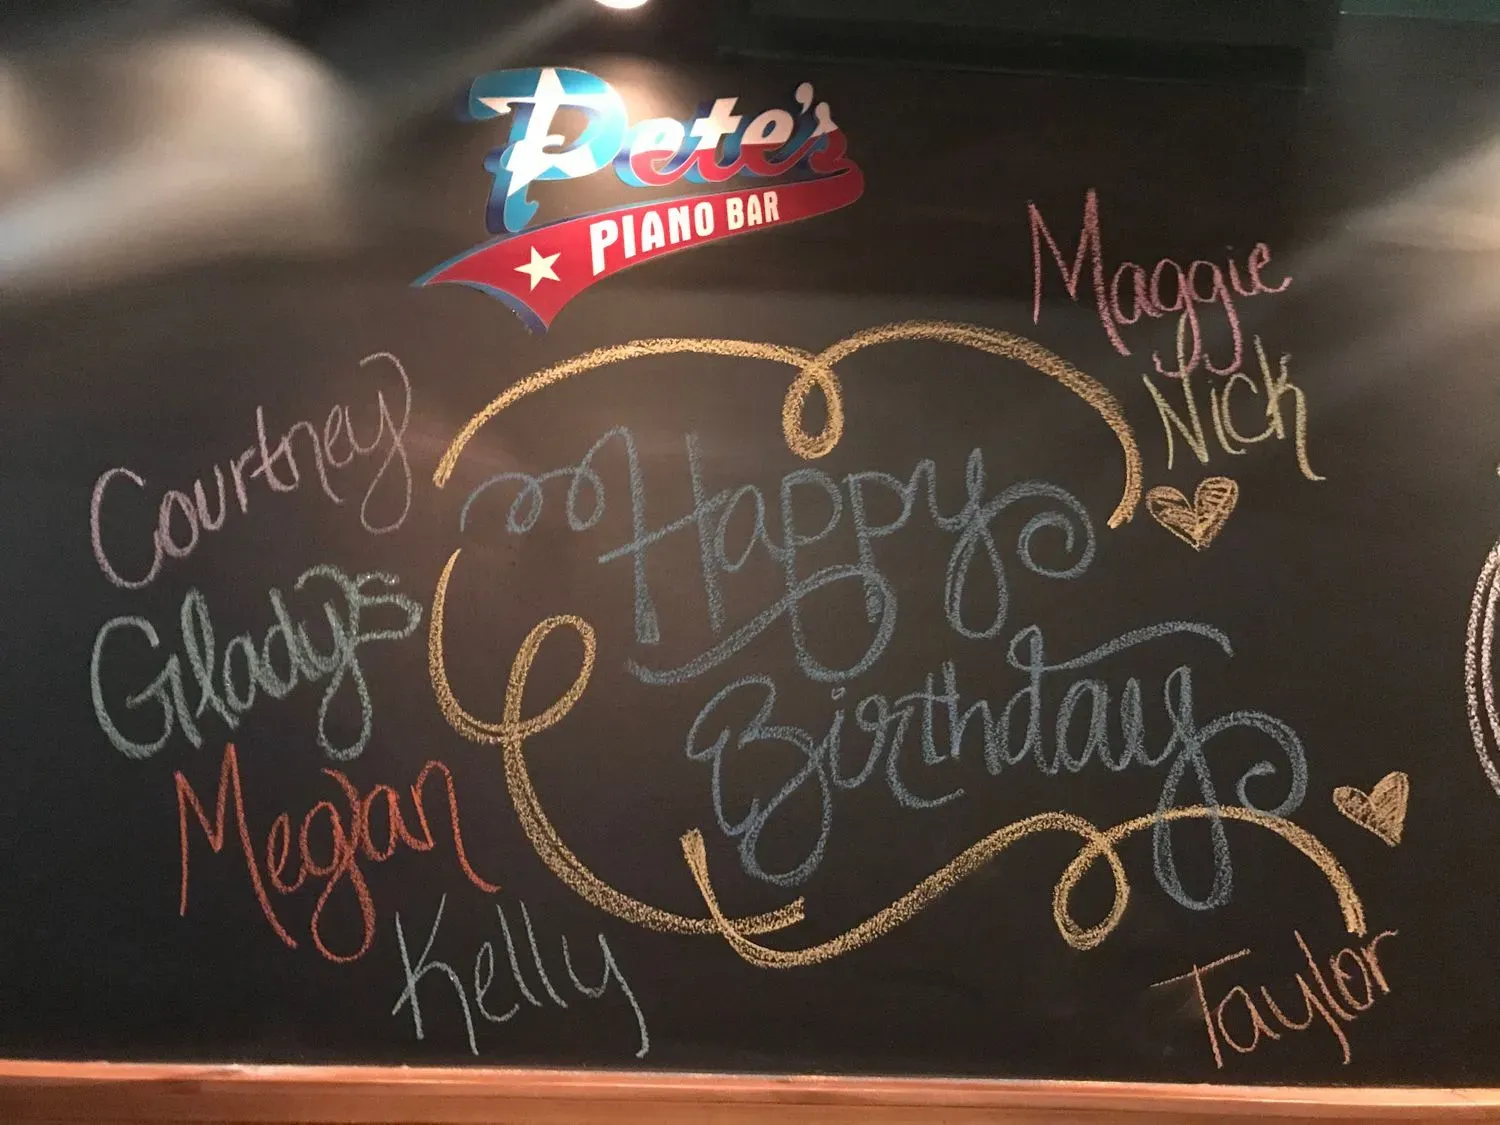 Pete's
PIANO BAR
Maggie
Nick
Courtney
Gladys
Megan
Kelly
Happy
Birthday
Taylor